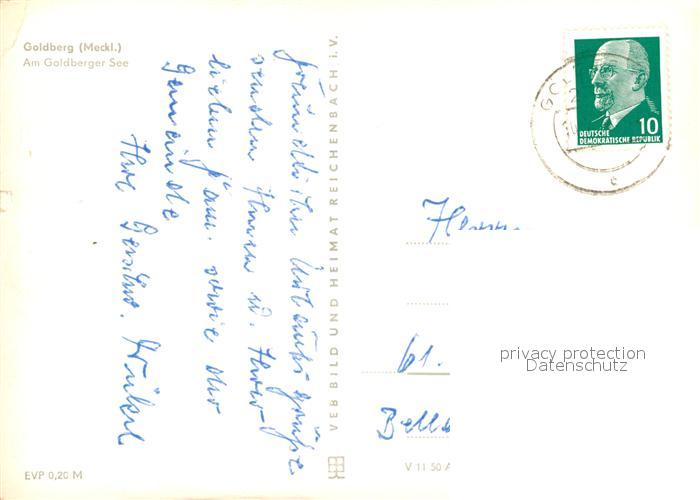 Goldberg (Meckl.)
Am Goldberger See
freundliche Urlaubsgrüße
senden Ihnen u. Ihrer
lieben Fam. sowie der
Gemeinde
Ihre
VEB BILD UND HEIMAT REICHENBACH i. V.
GOL
10
DEUTSCHE
DEMOKRATISCHE REPUBLIK
c
privacy protection
Datenschutz
EVP 0,20 M
V 11 50 A